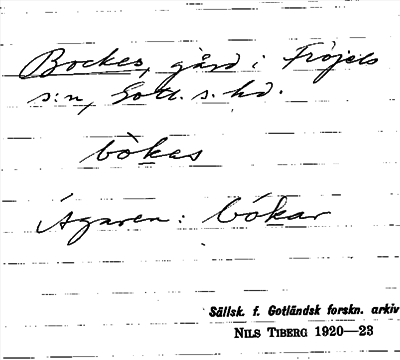 Bockes, gård i Fröjels
s:n, Gotl. s. hd.
bòkas
Ägaren: bókar
Sällsk. f. Gotländsk forskn. arkiv
NILS TIBERG 1920—23